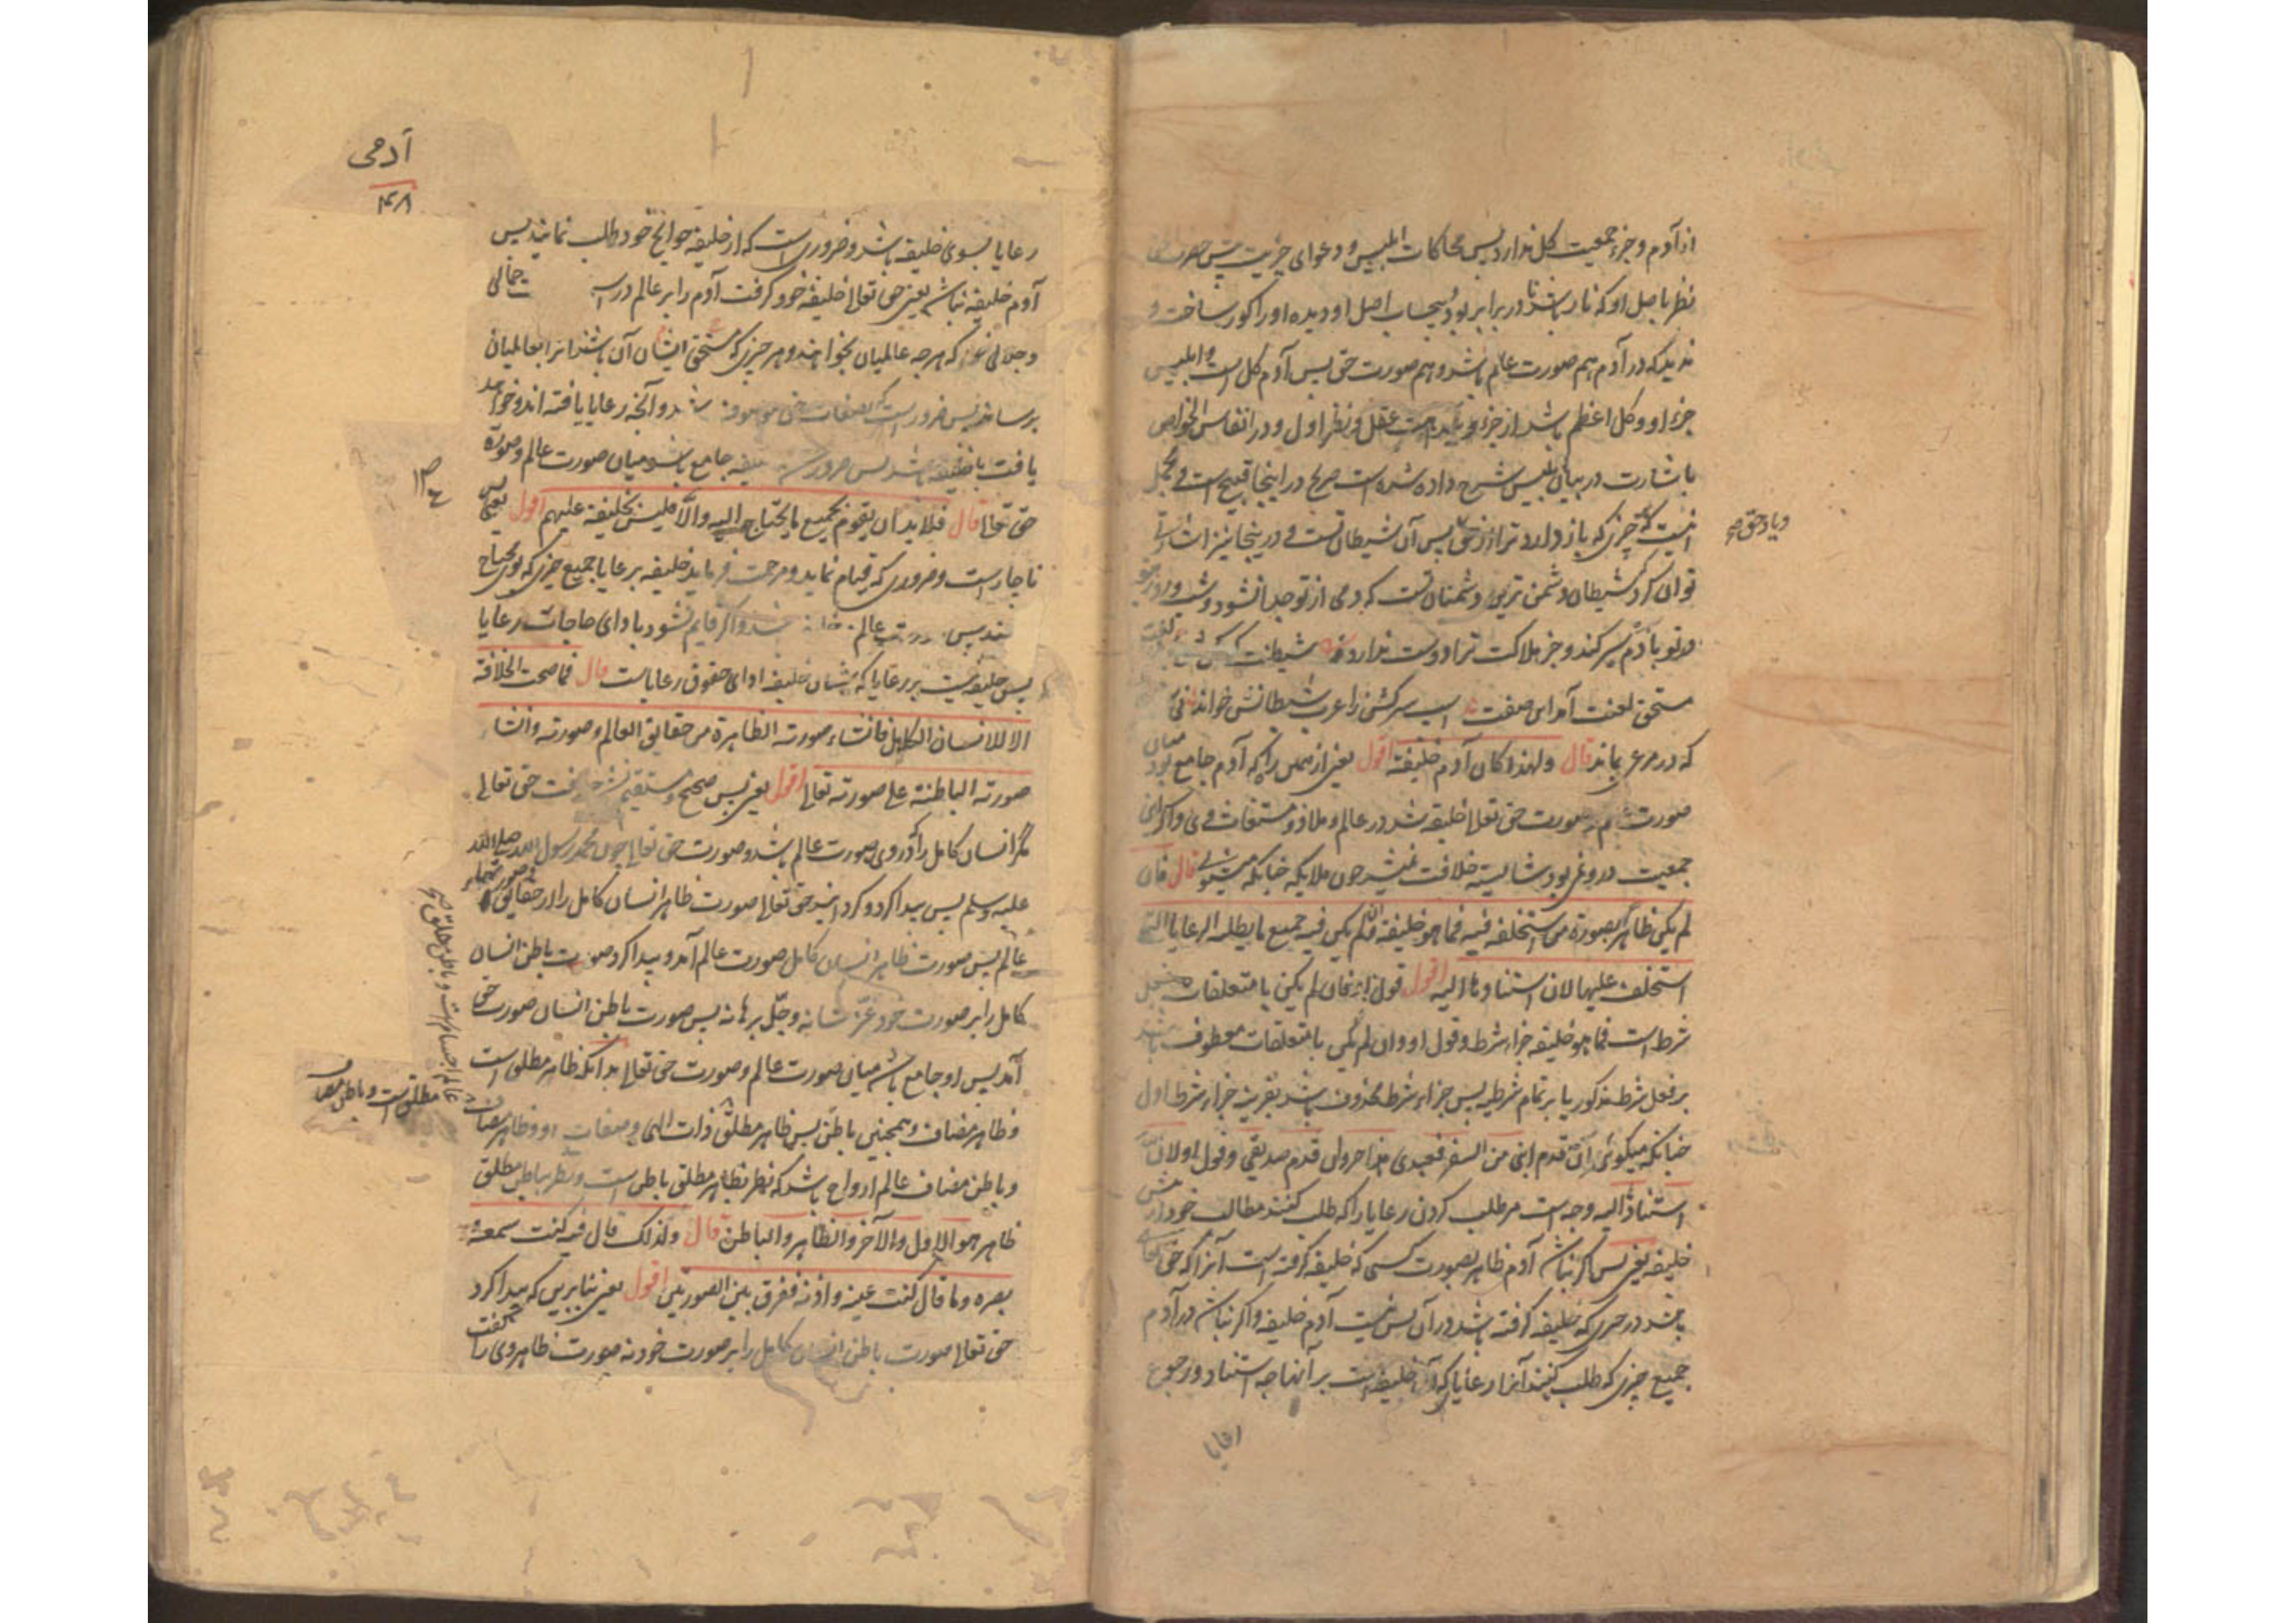 از آدم و جزء جمعیت کل ندارد پس محاکات ابلیس و دعوای خیریت پیش حضرت حق
نظر باصل او که نار باشد تا در برابر بود حجاب اصل او دیده او را کور ساخت و
ندید که در آدم هم صورت عالم باشد و هم صورت حق پس آدم کل است و ابلیس
جزء او و کل اعظم باشد از جزء عقل و نظر اول و در انفاس الخواص
باشارت در بیان ابلیس شرح داده شده است صریح در اینجا قبیح است
چیزی که باز دارد ترا از حق پس آن شیطان تست و در اینجا نیز
شیطان دشمن ترین دشمنان تست که دمی از تو جدا نشود
و جز هلاکت ترا دوست ندارد
مستحق لعنت آمد این صفت اسپ سرکش را عرب شیطانش خواند
که در مرعی بماند قال ولهذا کان آدم خلیفة اقول یعنی از همین راه که آدم جامع بود میان
صورت عالم و صورت حق تعالی خلیفه شد در عالم و ملاذ و مستغاث وی و اگر این
جمعیت در وی نمی بود شایسته خلافت نمیشد چون ملایکه چنانکه میشنوی قال فان
لم یکن ظاهرا بصورة من استخلفه فیه فما هو خلیفة وان لم یکن فیه جمیع ما یطلبه الرعایا التی
استخلف علیها لان استنادها الیه اقول قول او فان لم یکن با متعلقات
شرط است فما هو خلیفة جزاء شرط و قول او وان لم یکن با متعلقات معطوف باشد
بر فعل شرط مذکور یا بر تمام شرطیه پس جزاء شرط محذوف باشد بقرینه جزاء شرط اول
چنانکه میگوئی ان قدم ابنی من السفر فعبدی هذا حر وان قدم صدیقی و قول او لان
استنادها الیه وجه است مر طلب کردن رعایا را که طلب کنند مطالب خود را از
خلیفه یعنی پس اگر نباشد آدم ظاهر بصورت کسی که خلیفه گرفته است آنرا که حق تعالی
باشد در چیزی که خلیفه گرفته باشد در آن پس نیست آدم خلیفه و اگر نباشد در آدم
جمیع چیزی که طلب کنند آنرا رعایا که آدم خلیفه است بر آنها چه استناد و رجوع
رعایا
و یاد حق صح
آدمی
۱۴۸
رعایا بسوی خلیفه باشد و ضروری است که از خلیفه حوائج خود طلب نمایند پس
آدم خلیفه نباشد یعنی حق تعالی خلیفه خود گرفت آدم را بر عالم جمالی
و جلالی خود که هر چه عالمیان بخواهند و هر چیزی که مستحق ایشان آن باشند آنرا بعالمیان
برساند پس ضرور است که بصفات حق موصوف باشد و آنچه رعایا یافته اند و خواهند
یافت با خلیفه باشد پس ضرور خلیفه جامع باشد میان صورت عالم و صورة
حق تعالی قال فلا بد ان یقوم بجمیع ما یحتاج الیه والا فلیس بخلیفة علیهم اقول یعنی پس
ناچار است و ضروری که قیام نماید و مرحمت فرماید خلیفه بر رعایا جمیع چیزی که بوی محتاج
عالم و اگر قایم نشود بادای حاجات رعایا
پس خلیفه نیست بر رعایا که شان خلیفه ادای حقوق رعایاست قال فما صحت الخلافة
الا للانسان الکامل فانشاء صورته الظاهرة من حقایق العالم وصورته وانشا
صورته الباطنة علی صورته تعالی اقول یعنی پس صحیح و مستقیم نشد خلافت حق تعالی
مگر انسان کامل را که در وی صورت عالم باشد و صورت حق تعالی چون محمد رسول الله صلی الله
علیه وسلم پس پیدا کرد و گردانید حق تعالی صورت ظاهر انسان کامل را از حقایق
عالم پس صورت ظاهر انسان کامل صورت عالم آمد و پیدا کرد صورت باطن انسان
کامل را بر صورت خود عز شانه وجل برهانه پس صورت باطن انسان صورت حق
آمد پس او جامع باشد میان صورت عالم و صورت حق تعالی بدانکه ظاهر مطلق است
و ظاهر مضاف و همچنین باطن پس ظاهر مطلق ذات الهی و صفات او و ظاهر مضاف
و باطن مضاف عالم ارواح باشد که نظر بظاهر مطلق باطن است و نظر بباطن مطلق
ظاهر هو الاول والآخر والظاهر والباطن قال ولذلک قال فیه کنت سمعه و
بصره وما قال کنت عینه واذنه ففرق بین الصورتین اقول یعنی بنا برین که پیدا کرد
حق تعالی صورت باطن انسان کامل را بر صورت خود نه صورت ظاهر وی را گفت
عالم اجسام است و باطن مطلق
مطلق است و باطن مضاف